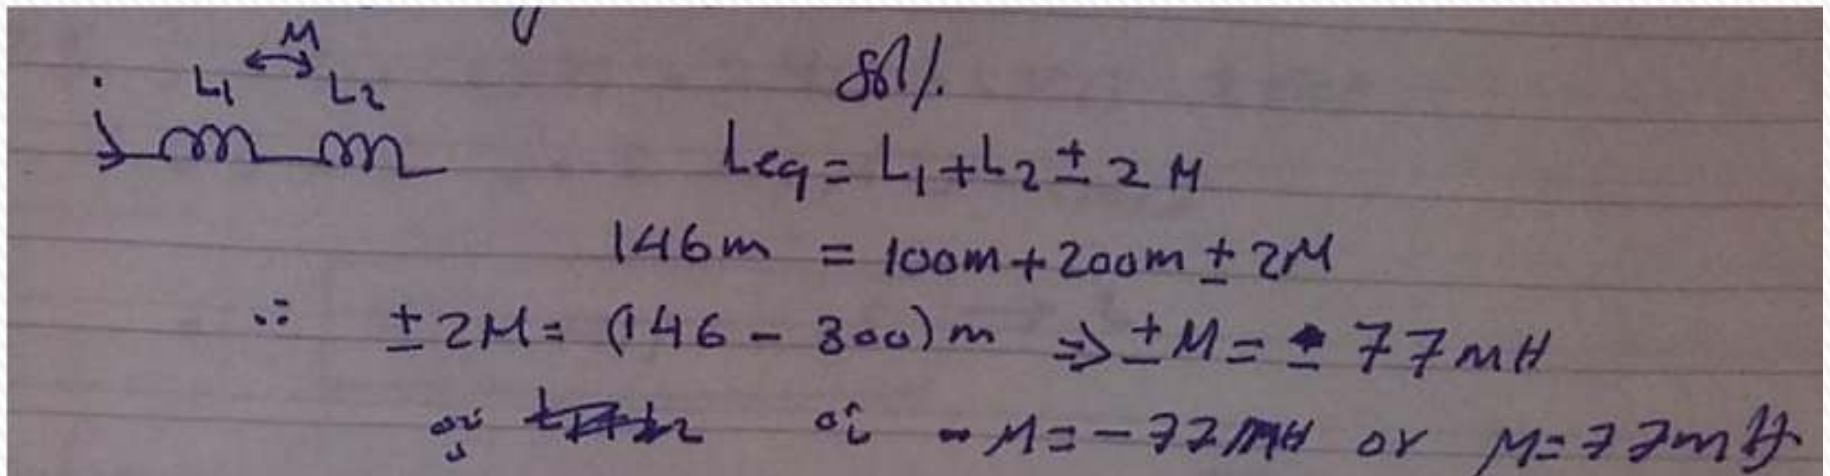 M
L1 L2
i
sol/.
Leq = L1 + L2 ± 2M
146m = 100m + 200m ± 2M
∴ ±2M = (146 - 300)m ⇒ ±M = ± 77mH
or - M = -77mH or M = 77mH